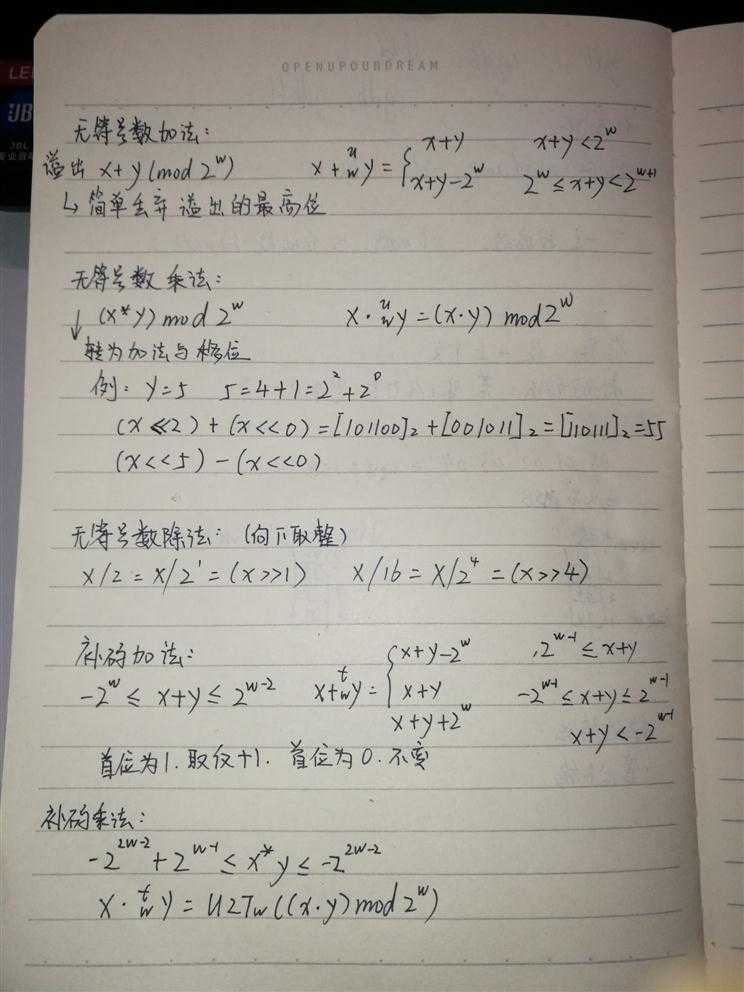 OPENUPOURDREAM
LE
JB
JBL
无符号数加法:
溢出 x+y (mod 2^w)   x +^u_w y = { x+y   x+y < 2^w
x+y-2^w   2^w ≤ x+y < 2^{w+1}
↳ 简单丢弃溢出的最高位
无符号数乘法:
↓ (x*y) mod 2^w   x ·^u_w y = (x·y) mod 2^w
转为加法与移位
例: y=5   5=4+1=2^2+2^0
(x<<2) + (x<<0) = [101100]_2 + [001011]_2 = [110111]_2 = 55
(x<<5) - (x<<0)
无符号数除法: (向下取整)
x/2 = x/2^1 = (x>>1)   x/16 = x/2^4 = (x>>4)
补码加法:   { x+y-2^w   2^{w-1} ≤ x+y
-2^w ≤ x+y ≤ 2^{w-2}   x +^t_w y = x+y   -2^{w-1} ≤ x+y ≤ 2^{w-1}
x+y+2^w   x+y < -2^{w-1}
首位为1.取仅+1. 首位为0.不变
补码乘法:
-2^{2w-2} + 2^{w-1} ≤ x*y ≤ -2^{2w-2}
x ·^t_w y = U2T_w((x·y) mod 2^w)